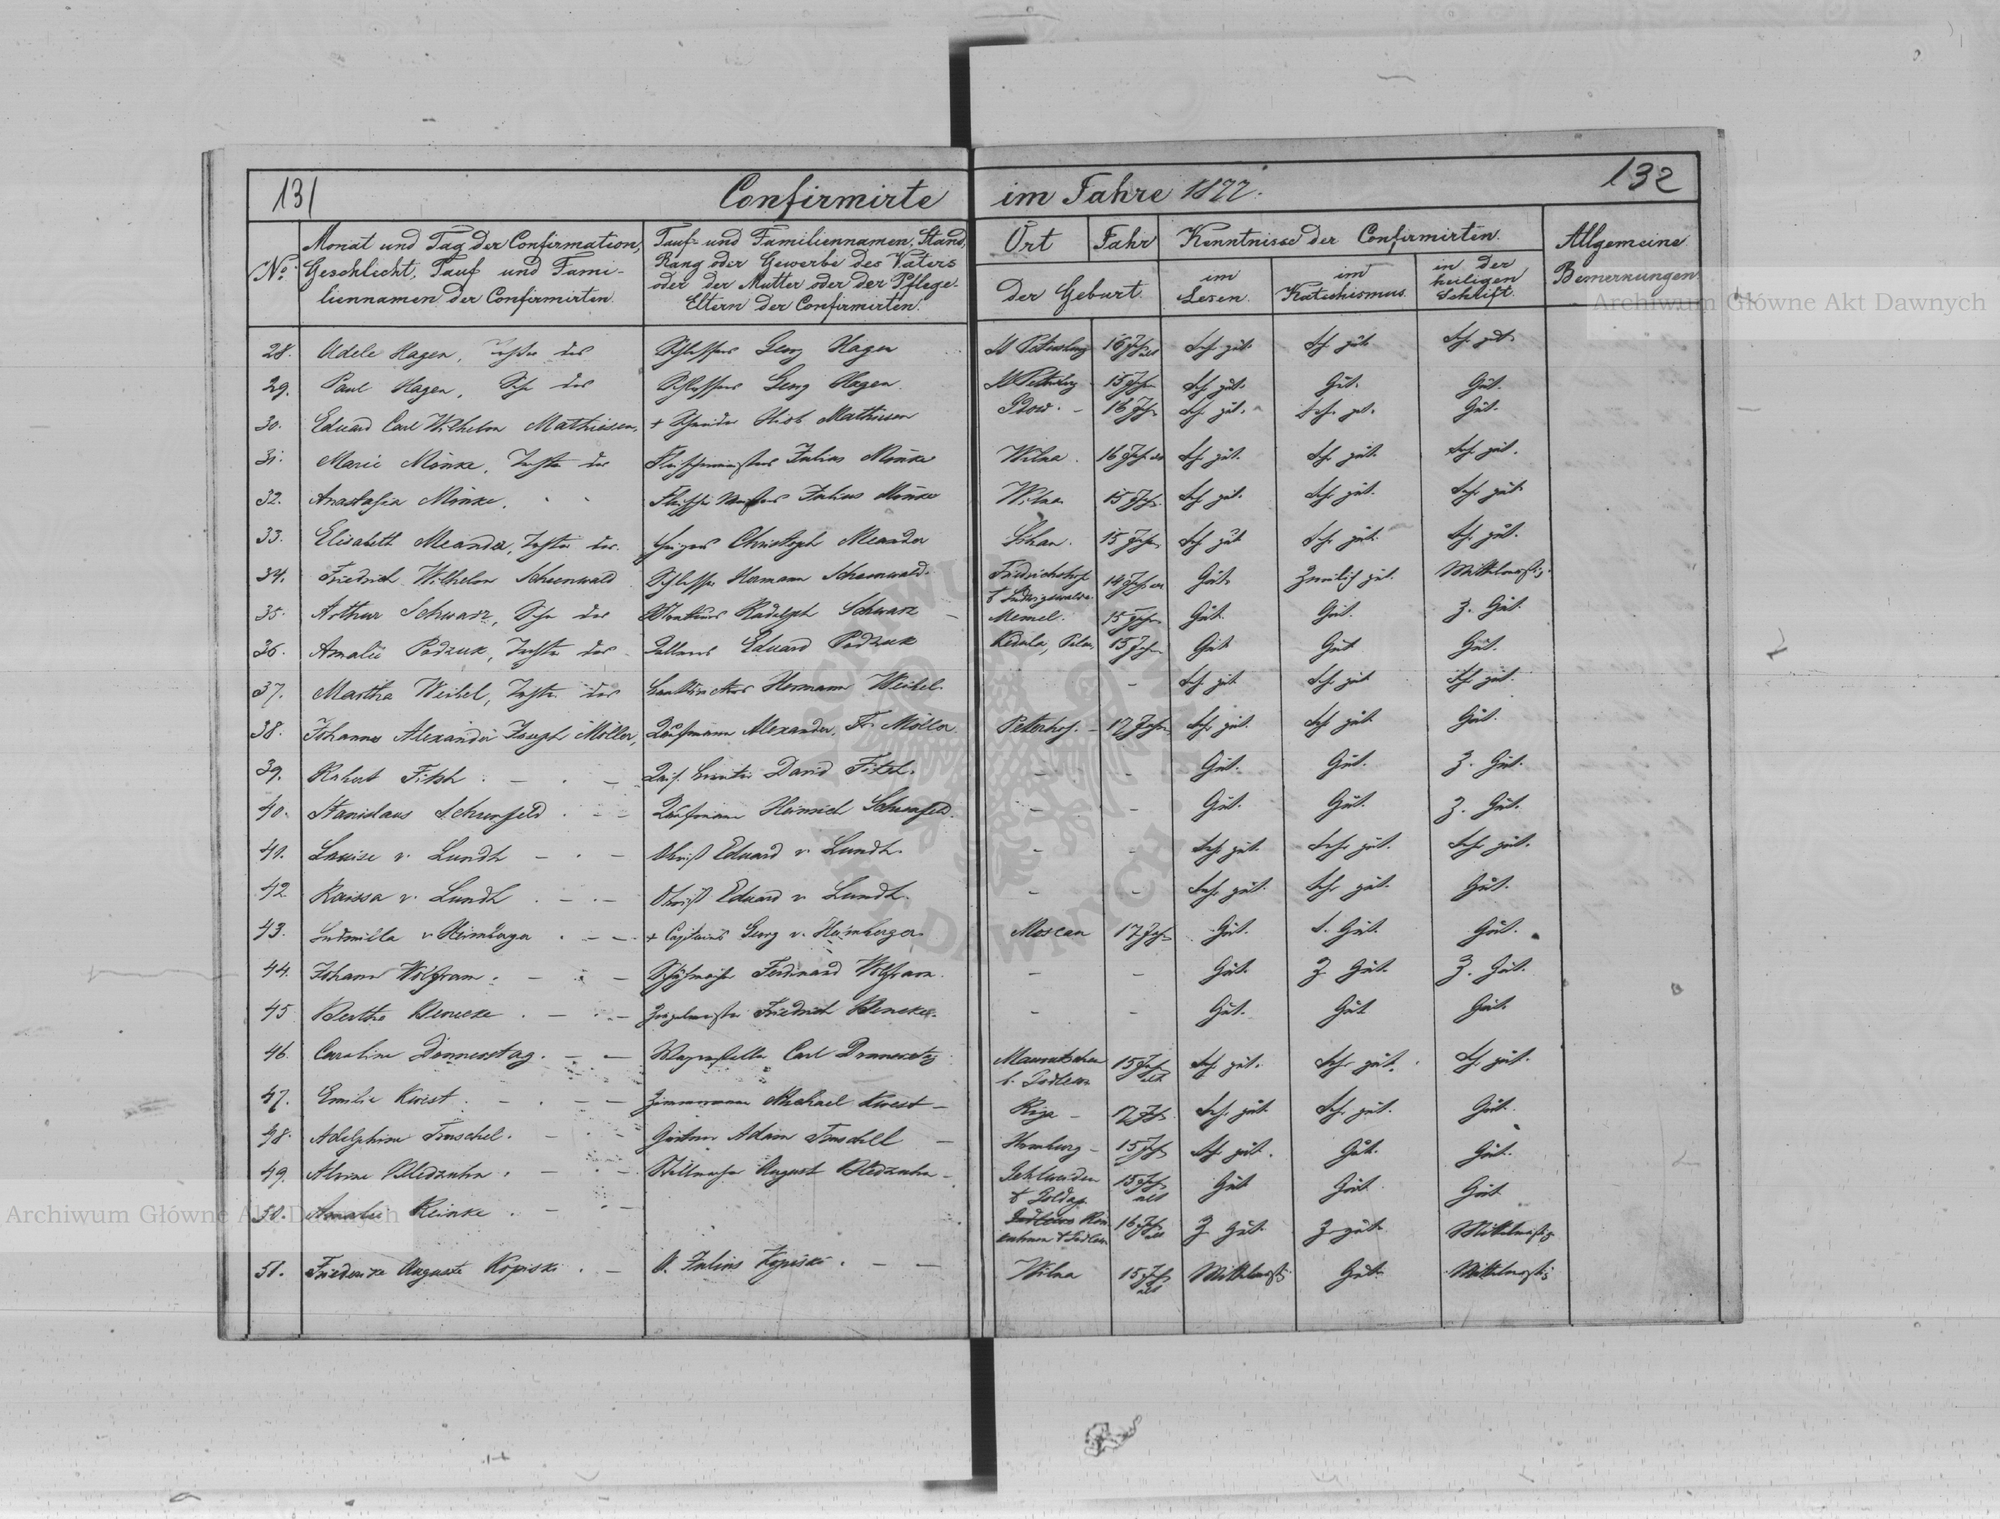 131
Confirmirte im Jahre 1877.
132
No.
Monat und Tag der Confirmation,
Geschlecht, Tauf und Fami-
liennamen der Confirmirten.
Tauf- und Familiennamen, Stand,
Rang oder Gewerbe des Vaters
oder der Mutter oder der Pflege-
Eltern der Confirmirten.
Ort
Jahr
Der Geburt
Kenntnisse der Confirmirten.
im
Lesen.
im
Katechismus
in der
heiligen
Schrift.
Allgemeine
Bemerkungen
Archiwum Główne Akt Dawnych
28. Adele Hagen, Tochter des Schlossers Georg Hagen St Petersburg 16 Jahr alt Sehr gut. Sehr gut Sehr gut
29. Paul Hagen, Sohn des Schlossers Georg Hagen. St Petersburg 15 Jahr Sehr gut. Gut. Gut.
30. Eduard Carl Wilhelm Mathiesen, + Schneider Mathiesen 16 Jahr Sehr gut. Sehr gut. Gut.
31. Marie Mönke, Tochter des Fleischermeisters Julius Mönke Wilna. 16 Jahr alt Sehr gut. Sehr gut Sehr gut.
32. Anastasia Mönke. Fleischer Meisters Julius Mönke Wilna 15 Jahr Sehr gut. Sehr gut. Sehr gut
33. Elisabeth Meander, Tochter des Christoph Meander 15 Jahr Sehr gut Sehr gut. Sehr gut.
34. Friedrich Wilhelm Scheenwald Schlosser Hermann Scheenwald. Friedrichshof 14 Jahr alt Gut. Ziemlich gut. Mittelmässig.
35. Arthur Schwarz, Sohn des Rudolph Schwarz Memel. 15 Jahr Gut. Gut. Z. Gut.
36. Amalie Podzuk, Tochter des Eduard Podzuk 15 Jahr Gut Gut Gut.
37. Martha Weibel, Tochter des Hermann Weibel. - Sehr gut Sehr gut Sehr gut.
38. Johannes Alexander Joseph Möller, Kaufmann Alexander Fr. Möller Peterhof. 17 Jahr Sehr gut. Sehr gut. Gut.
39. Robert Fitsh David Fitsh. - - Gut. Gut. Z. Gut.
40. Stanislaus Schunfeld Kaufmann Heinrich Schunfeld. - - Gut. Gut. Z. Gut.
41. Louise v. Lundh Obrist Eduard v. Lundh. - - Sehr gut. Sehr gut. Sehr gut.
42 Raissa v. Lundh Obrist Eduard v. Lundh. - - Sehr gut. Sehr gut. Gut.
43. Ludmilla v Heimberger + Capitains Georg v. Heimberger. Moscau 17 Jahr Gut. S. Gut. Gut.
44. Johann Wolfram. Ferdinand Wolfram. - - Gut. Z. Gut. Z. Gut.
45 Bertha Beneke Friedrich Beneke. - - Gut. Gut Gut.
46. Caroline Donnerstag. Carl Donnerstag 15 Jahr alt Sehr gut. Sehr gut. Sehr gut.
47. Emilie Kwest. Zimmermann Michael Kwest Riga 17 Jahr Sehr gut Sehr gut. Gut.
48. Adelphine Truschel. Gärtner Adam Truschell Homburg 15 Jahr Sehr gut. Gut. Gut.
49. Alvine Bledzuhn. Stellmacher August Bledzuhn 15 Jahr alt Gut Gut Gut
50. Amalie Reinke 16 Jahr alt Z. Gut. Z. gut. Mittelmässig
51. Friederike Auguste Kopiski. V. Julius Kopiski. Wilna 15 Jahr alt Mittelmässig Gut. Mittelmässig
Archiwum Główne Akt Dawnych